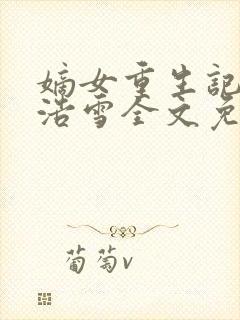 嫡女重生記
浩雪全文免
葡萄v